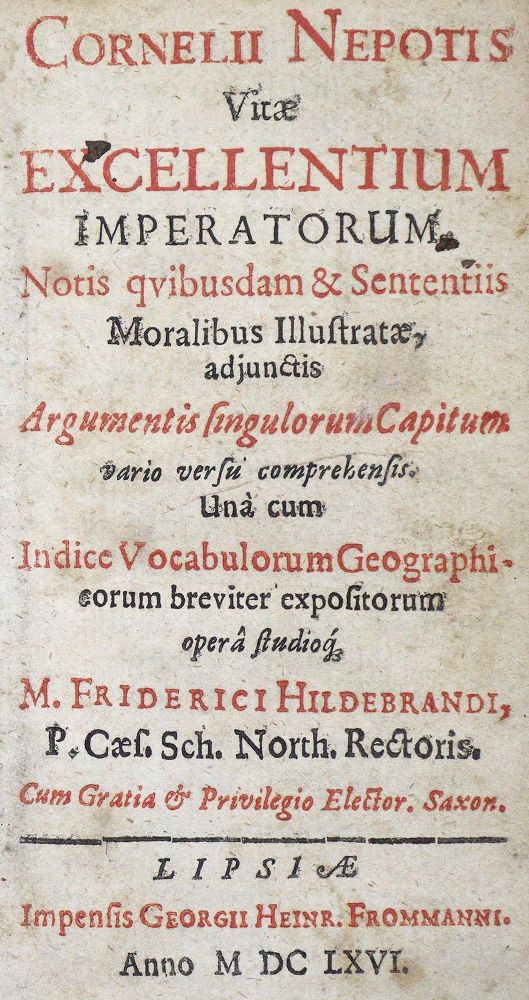 CORNELII NEPOTIS
Vitæ
EXCELLENTIUM
IMPERATORUM,
Notis qvibusdam & Sententiis
Moralibus Illuſtratæ,
adjunctis
Argumentis ſingulorum Capitum
vario verſu comprehenſis.
Unà cum
Indice Vocabulorum Geographi-
corum breviter expoſitorum
operâ ſtudioq́;
M. FRIDERICI HILDEBRANDI,
P. Cæſ. Sch. North. Rectoris.
Cum Gratia & Privilegio Elector. Saxon.
LIPSIÆ
Impenſis GEORGII HEINR. FROMMANNI.
Anno M DC LXVI.